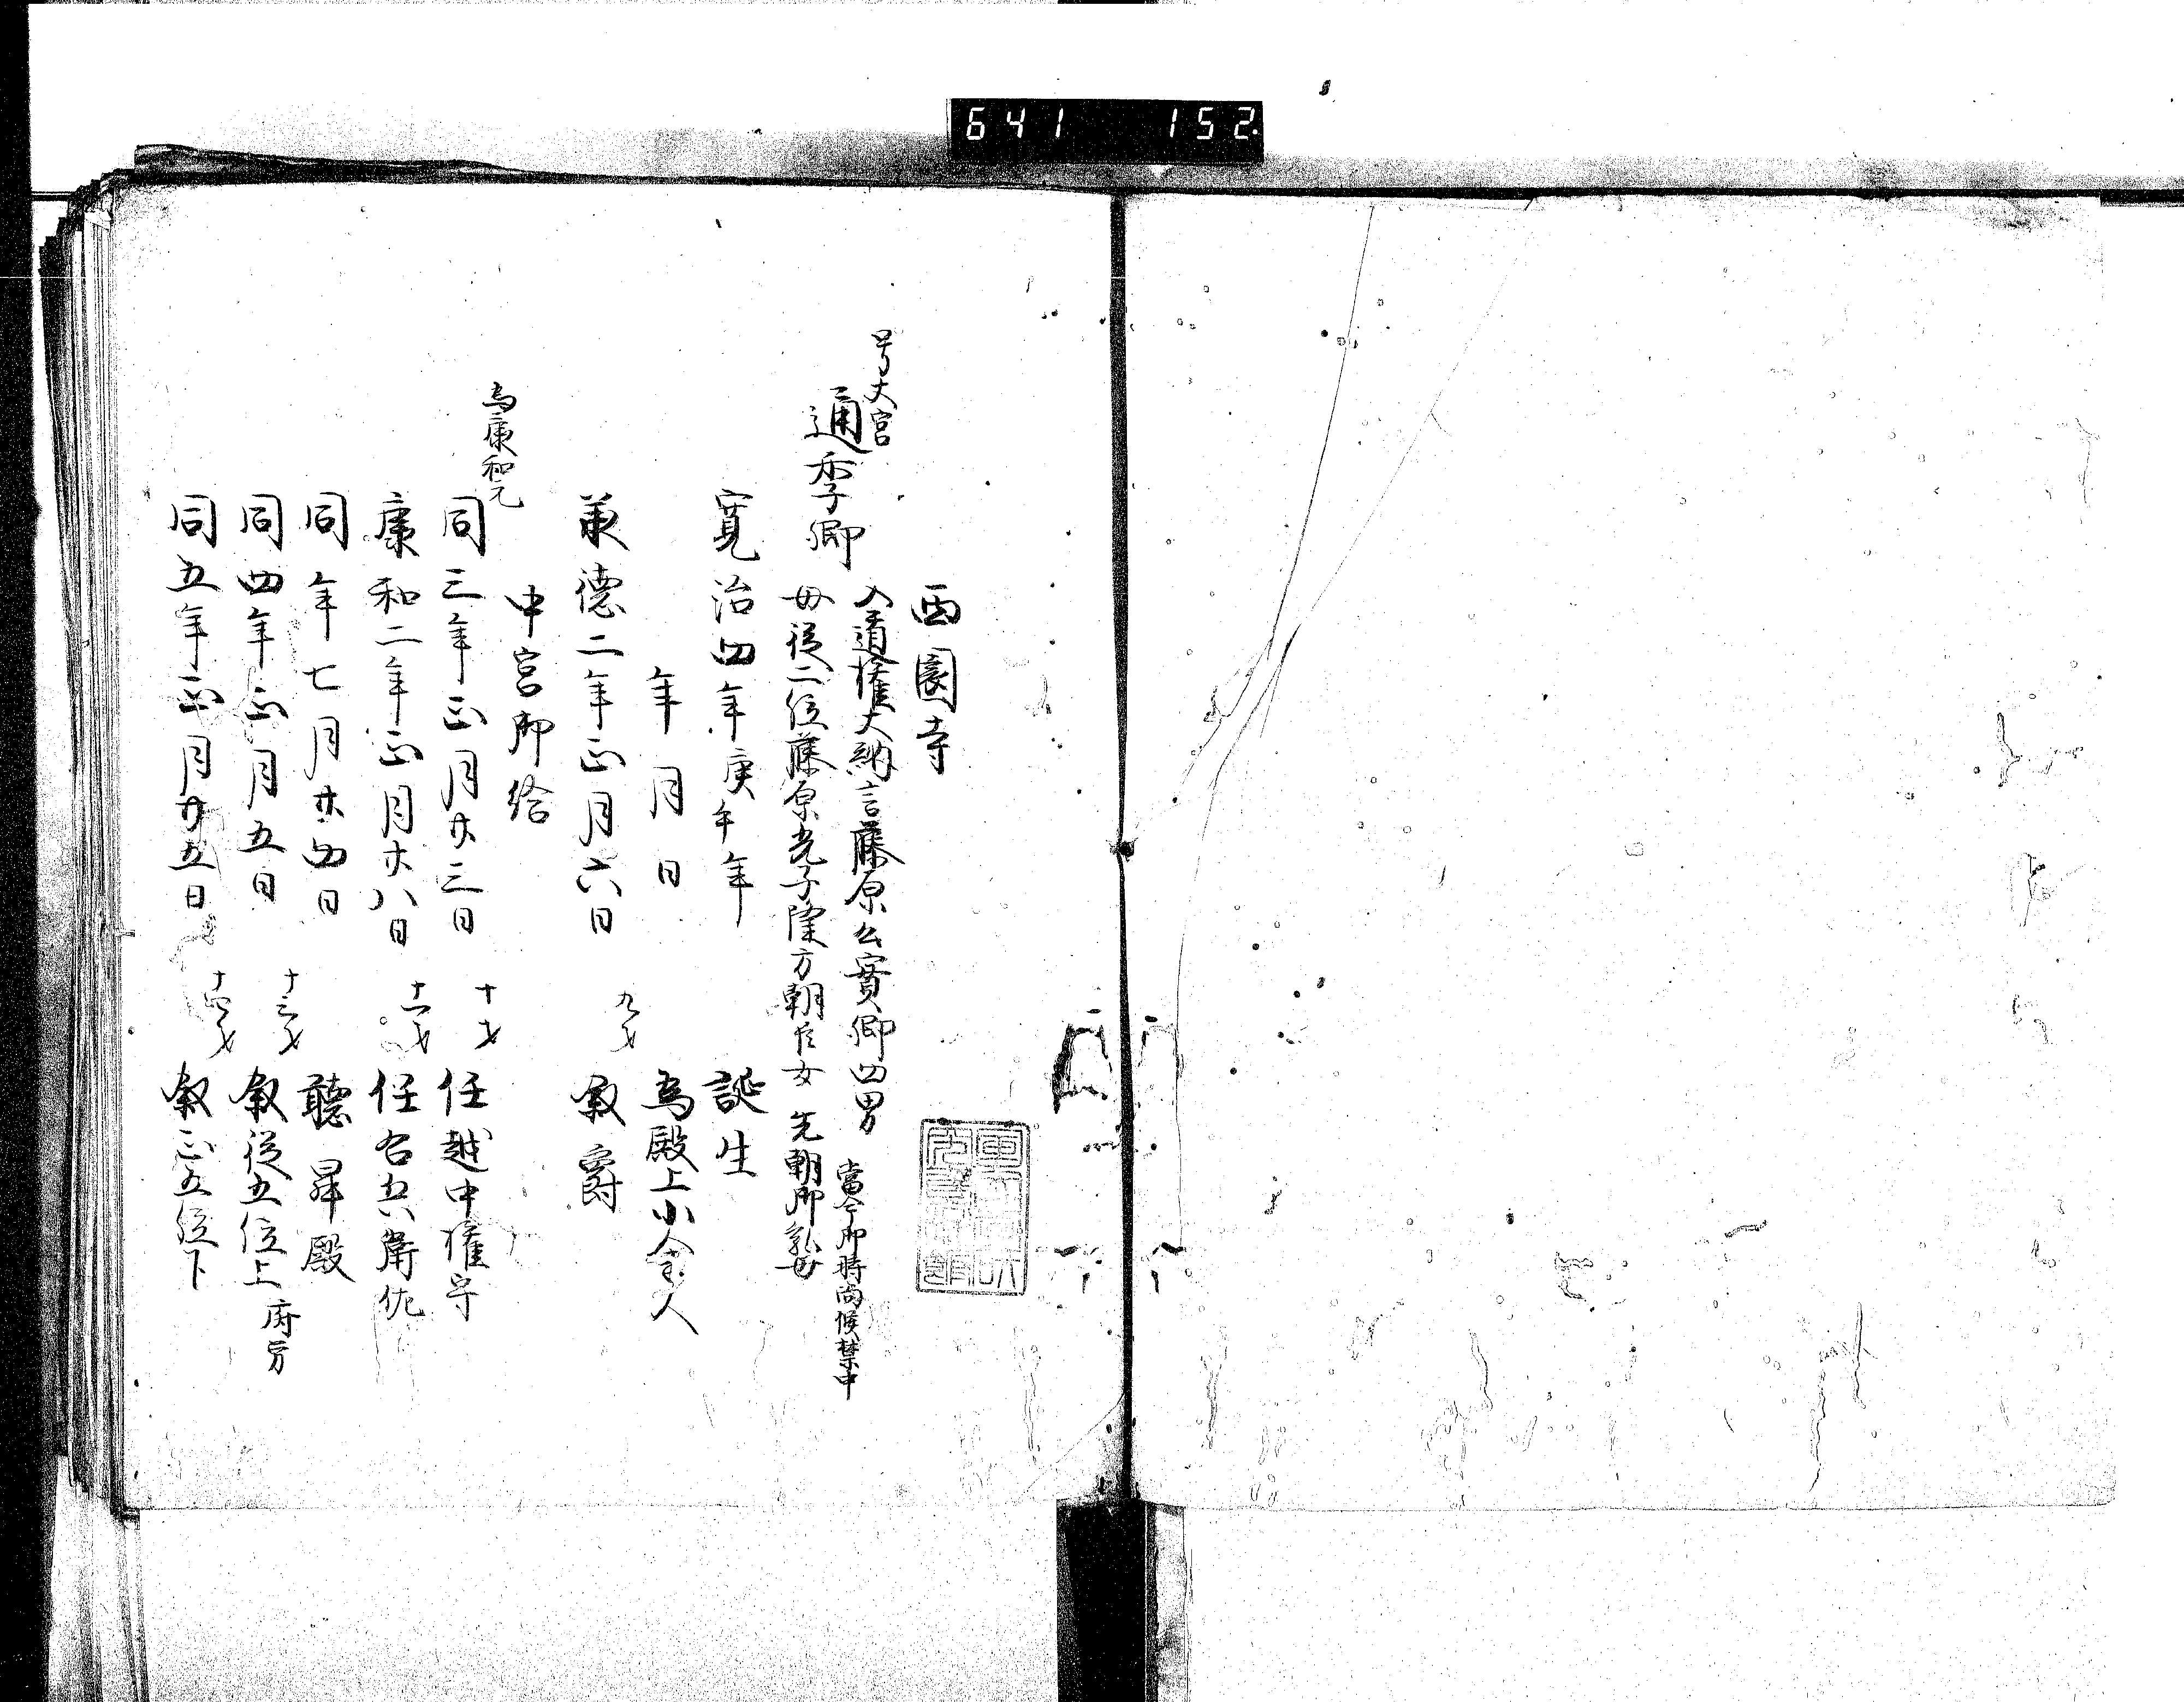 641 152
西園寺
号大宮
通季卿
入道権大納言藤原公實卿四男 當今御時尚候禁中
母従二位藤原光子隆方朝臣女 先朝御乳母
寛治四年庚午年 誕生
年月日 為殿上小舎人
承徳二年正月六日 九才 叙爵
中宮御給
為康和元
同三年正月廿三日 十才 任越中権守
康和二年正月廿八日 十一才 任右兵衛佐
同年七月廿四日 聴昇殿
同四年正月五日 十三才 叙従五位上 府労
同五年正月廿五日 十四才 叙正五位下